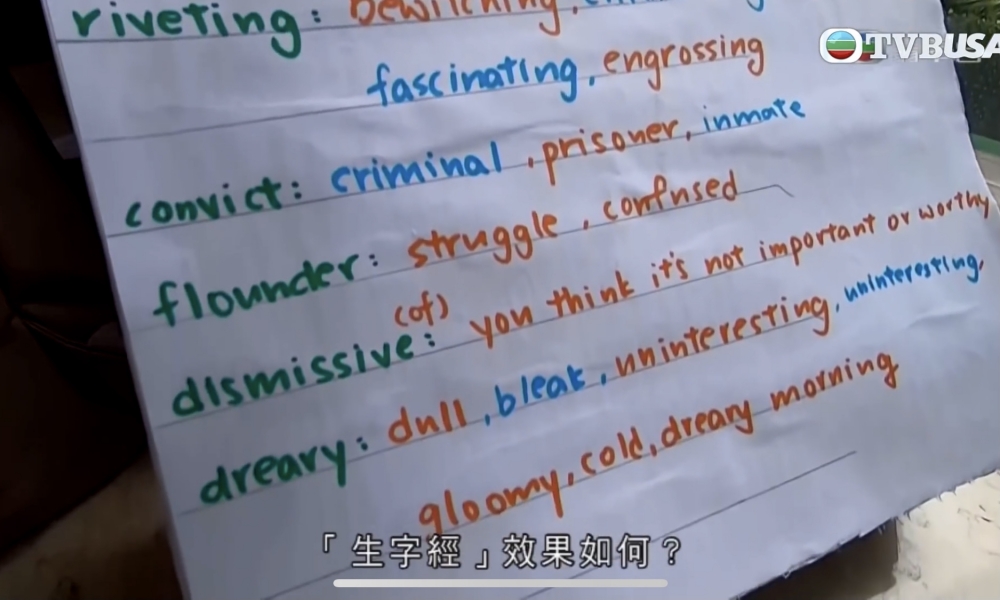 riveting: bewitching,
TVBUSA
fascinating, engrossing
convict: criminal, prisoner, inmate
flounder: struggle, confused
(of)
dismissive: you think it's not important or worthy
dreary: dull, bleak, uninteresting, uninteresting,
gloomy, cold, dreary morning
「生字經」效果如何？